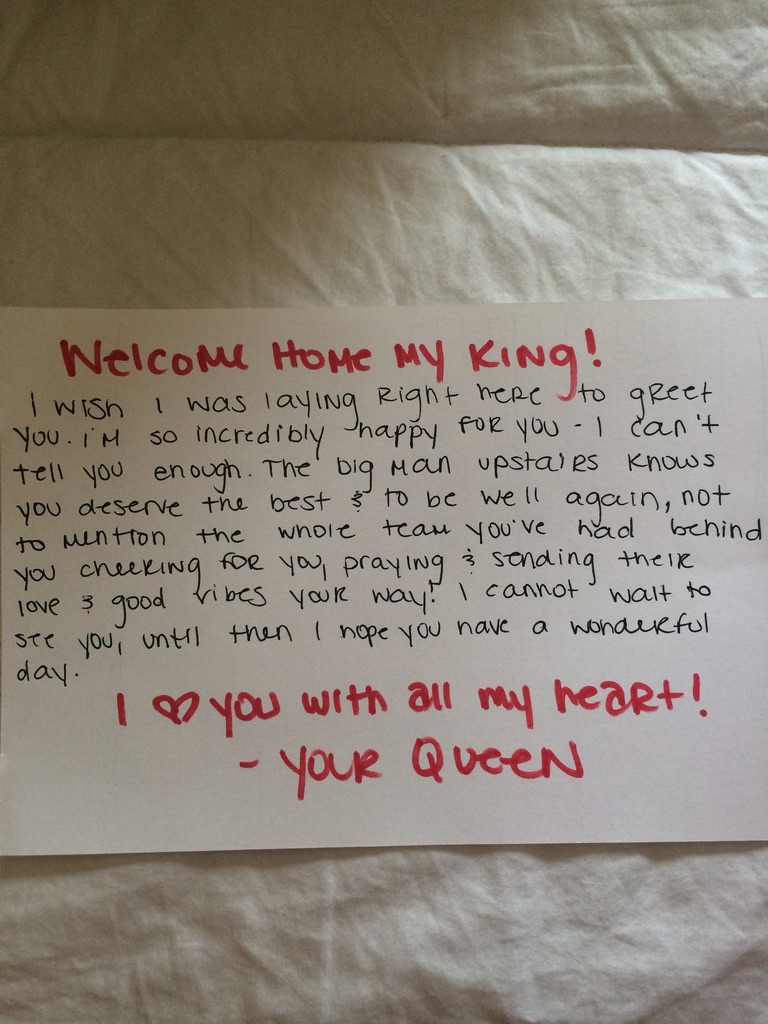 Welcome Home My King!
I wish I was laying right here to greet
you. I'm so incredibly happy for you - I can't
tell you enough. The big man upstairs knows
you deserve the best & to be well again, not
to mention the whole team you've had behind
you cheering for you, praying & sending their
love & good vibes your way! I cannot wait to
see you, until then I hope you have a wonderful
day.
I ♡ you with all my heart!
- Your Queen